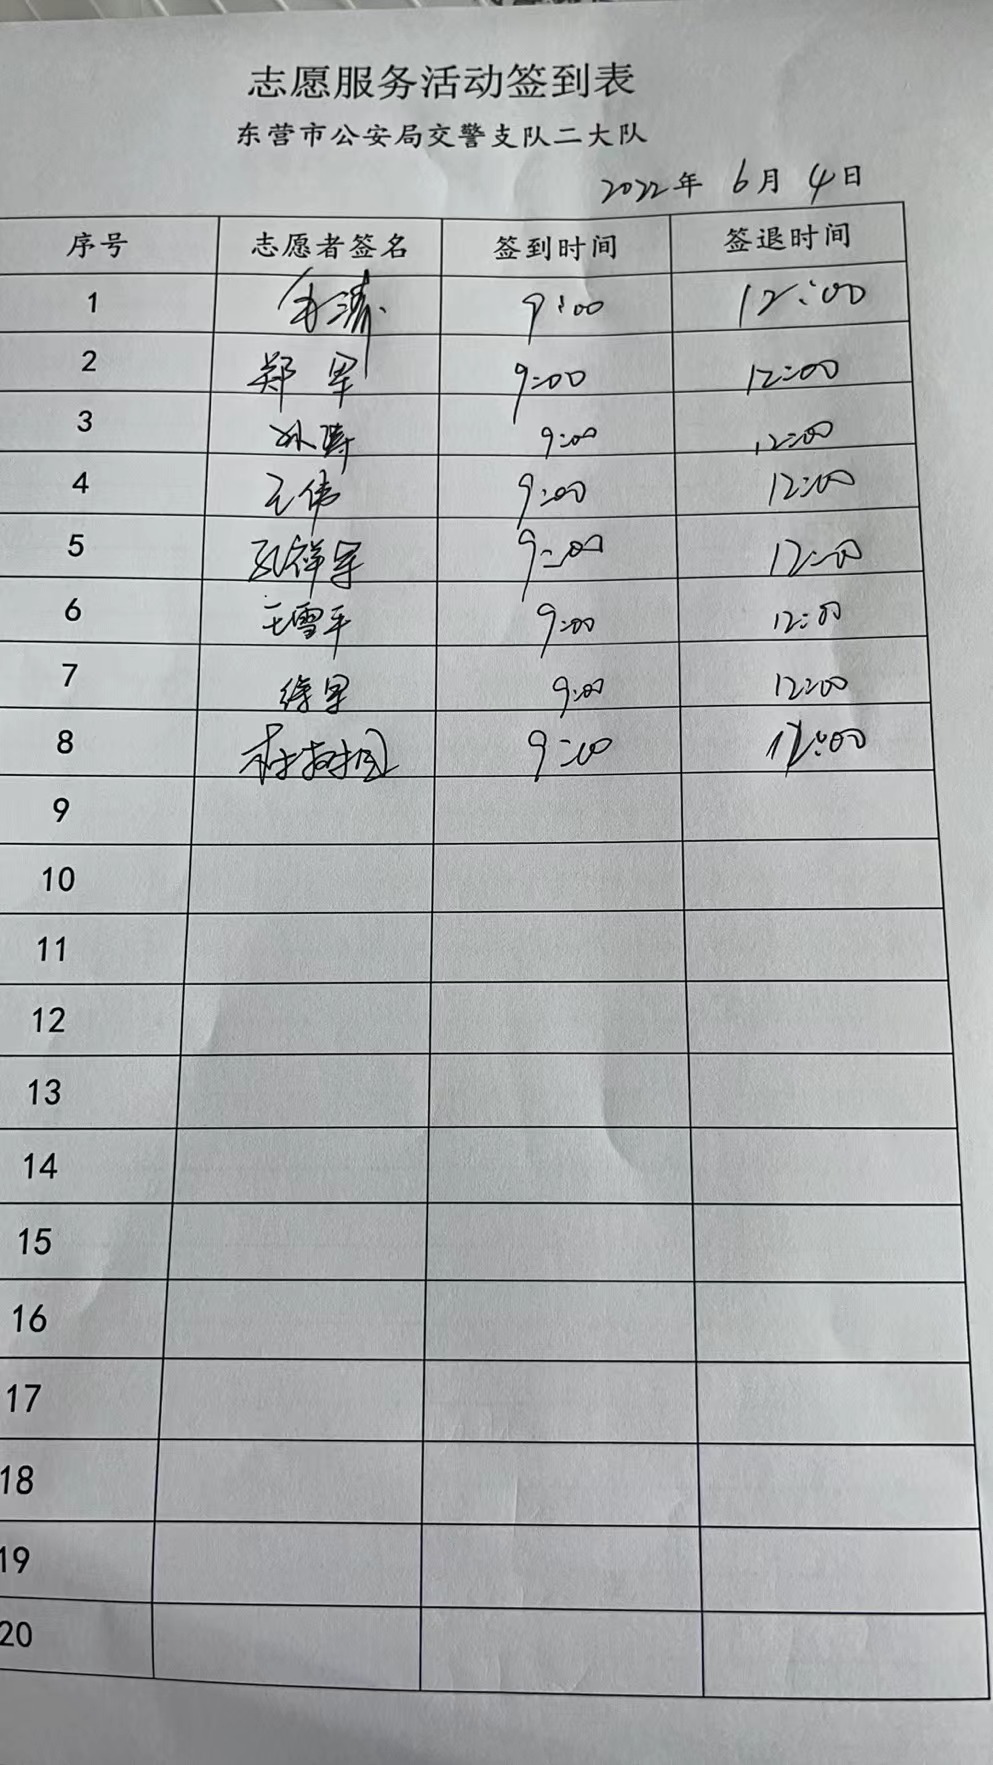 志愿服务活动签到表
东营市公安局交警支队二大队
2022年 6月 4日
序号 志愿者签名 签到时间 签退时间
1 9:00 12:00
2 郑军 9:00 12:00
3 9:00 12:00
4 王伟 9:00 12:00
5 孔祥军 9:00 12:00
6 王雪平 9:00 12:00
7 徐军 9:00 12:00
8 9:00 12:00
9
10
11
12
13
14
15
16
17
18
19
20